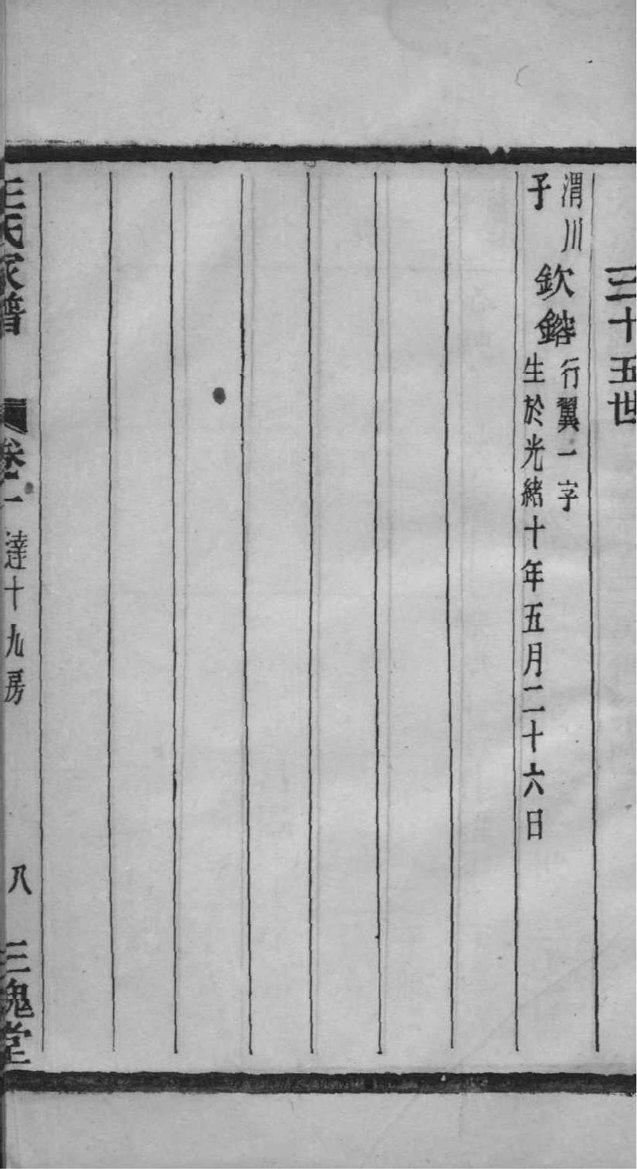 三十五世
渭川
子
欽鎔
行翼一字
生於光緒十年五月二十六日
王氏家譜
卷一 達十九房
八
三槐堂